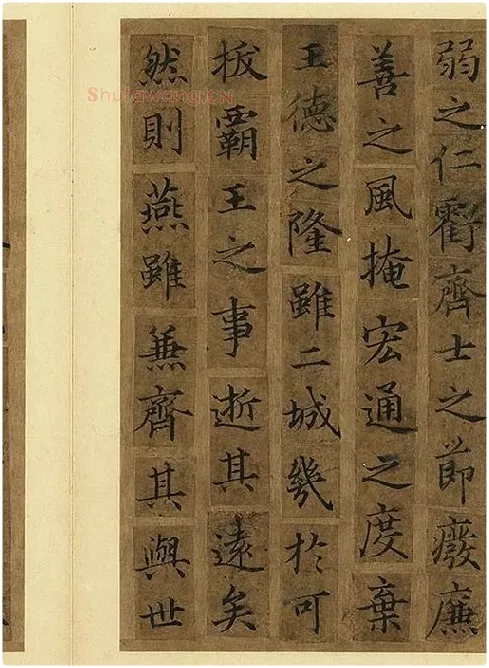 弱之仁虧齊士之節癈廉
善之風掩宏通之度棄
王德之隆雖二城幾於可
拔霸王之事逝其遠矣
然則燕雖兼齊其與世
Shufawang.CN